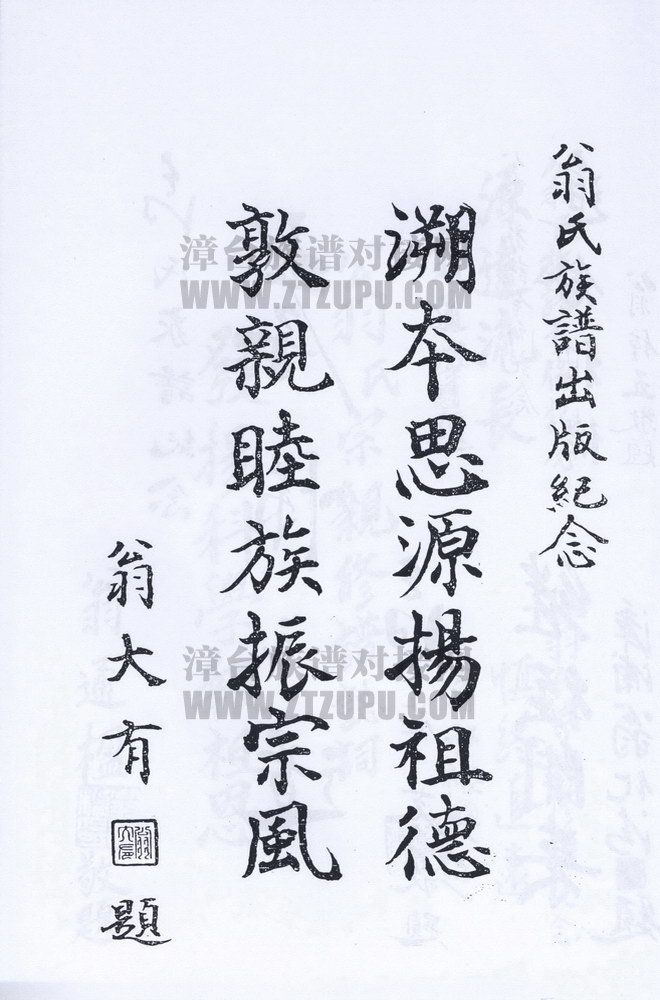 翁氏族譜出版紀念
溯本思源揚祖德
敦親睦族振宗風
翁大有
題
漳台族谱对接网
WWW.ZTZUPU.COM
漳台族谱对接网
WWW.ZTZUPU.COM